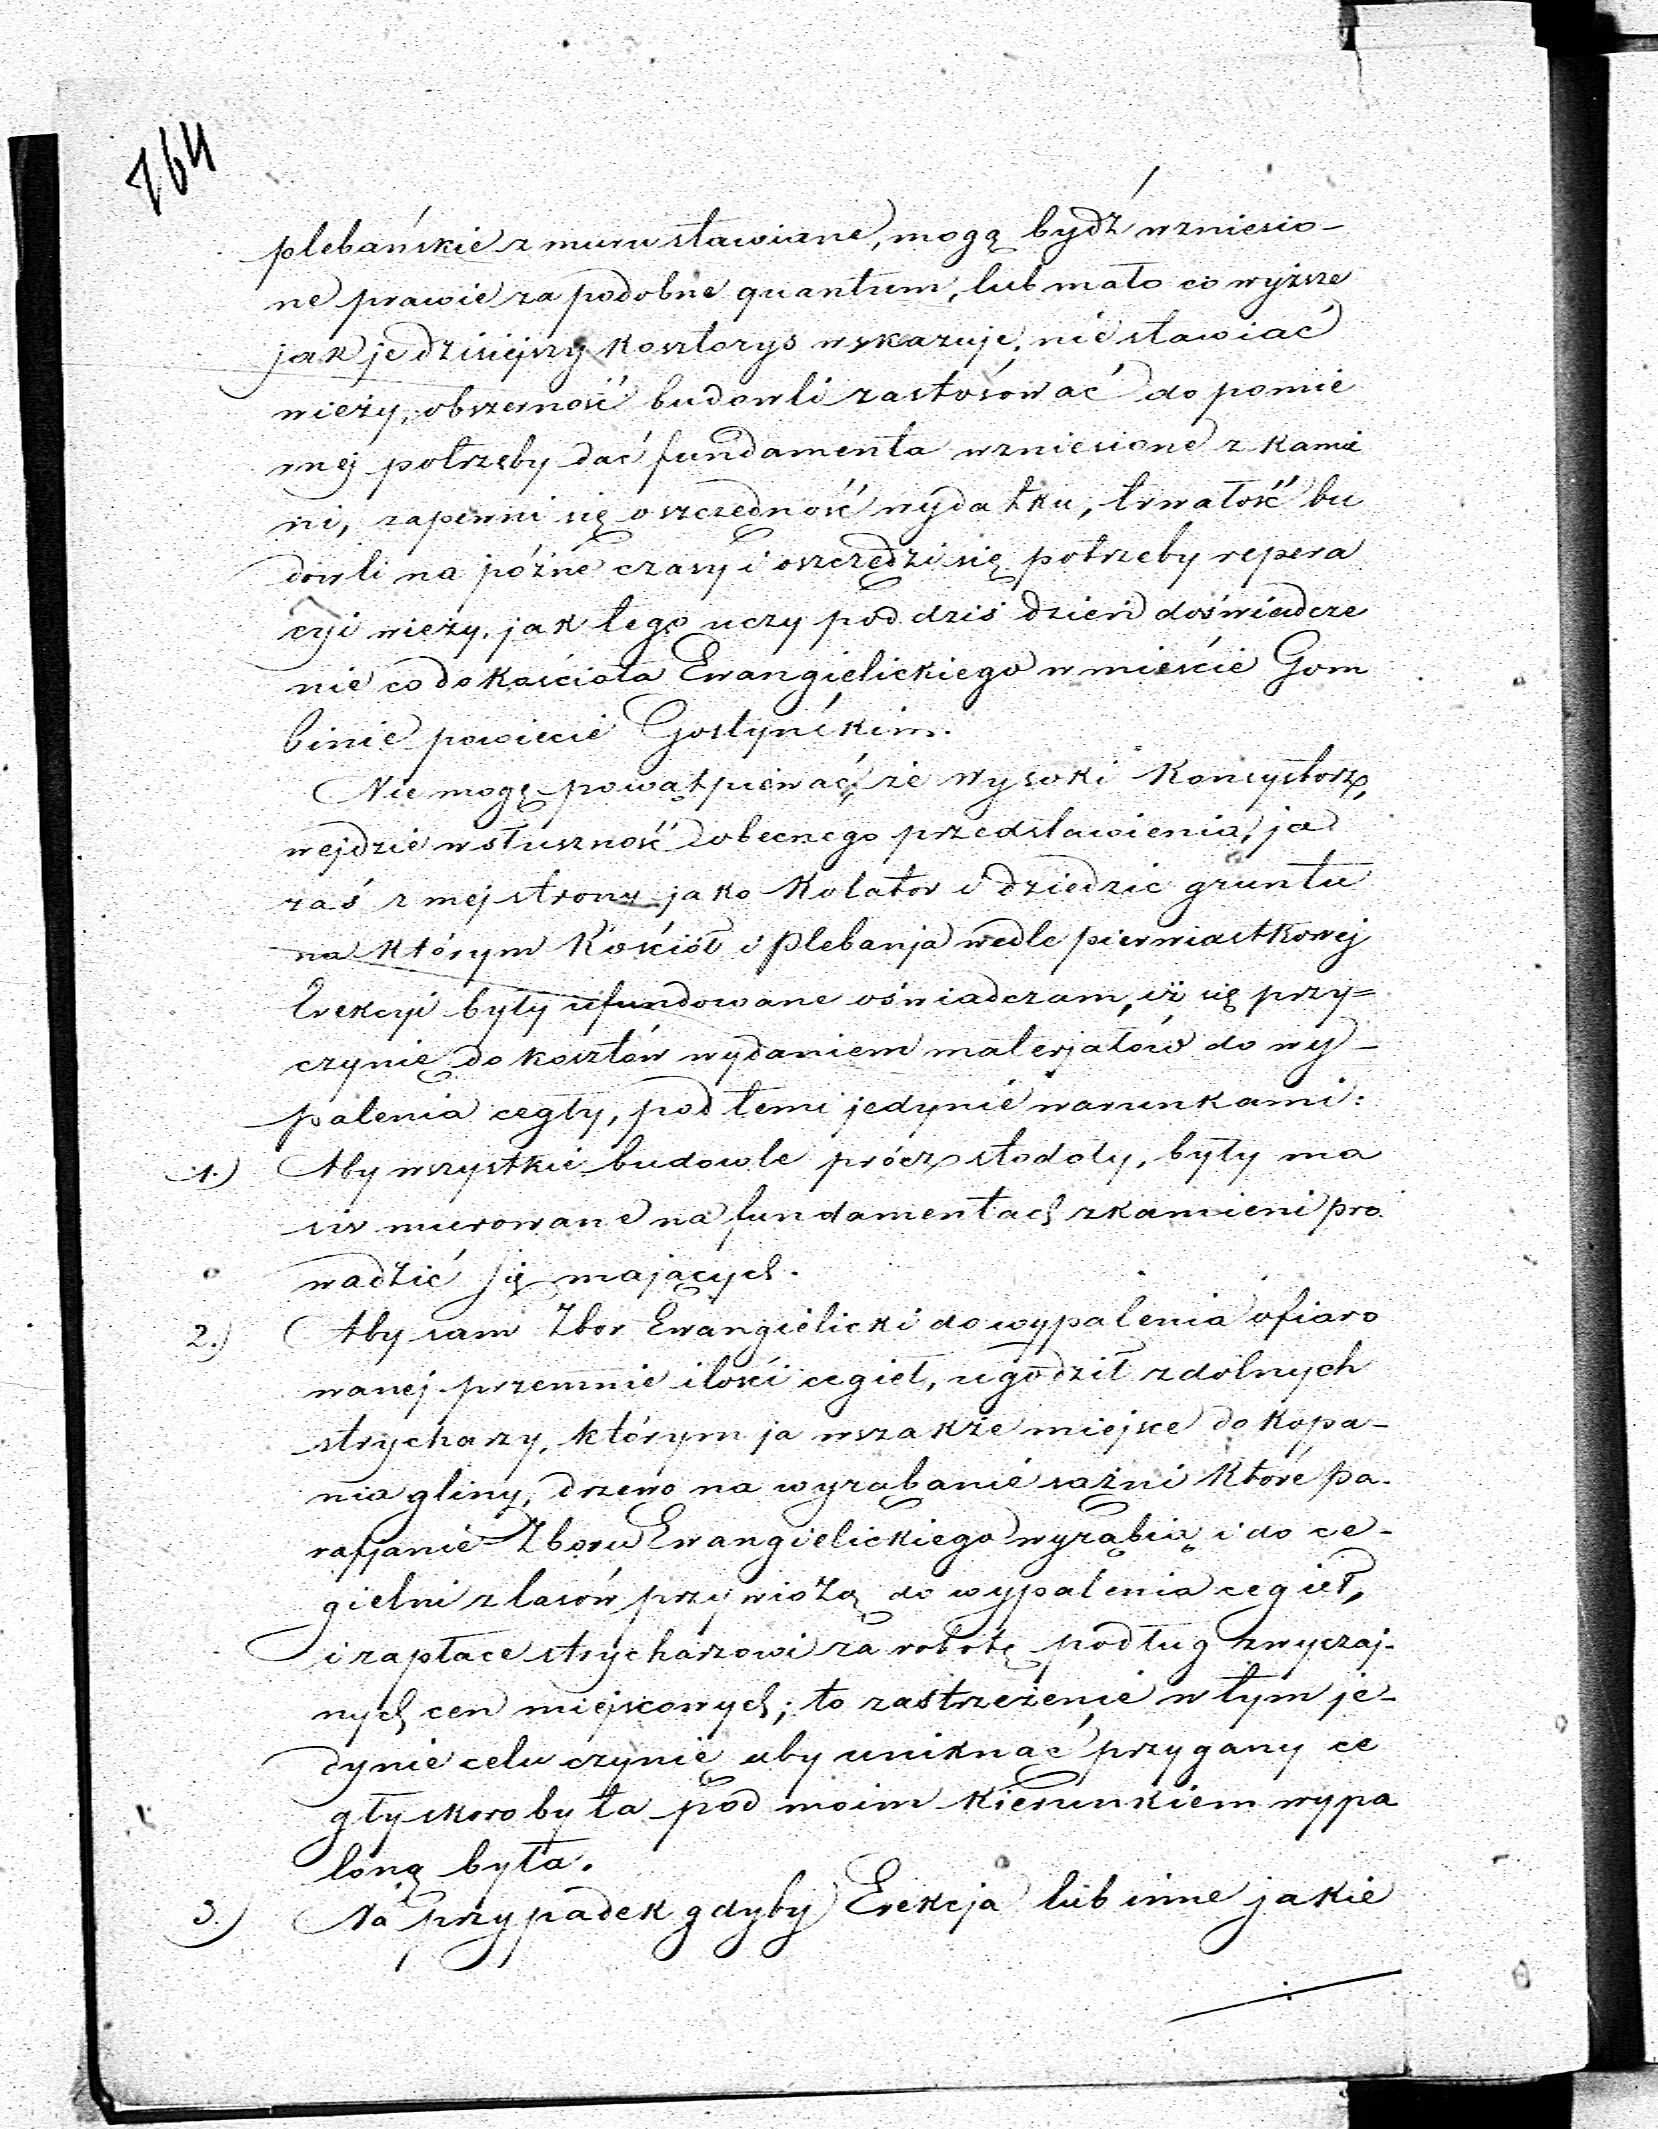 264
plebańskie z muru stawiane, mogą bydź wzniesio-
ne prawie za podobne quantum, lub mało co wyższe
jak je dzisiejszy kosztorys wskazuje, nie stawiać
wieży, obszerność budowli zastosować do pomie
rnej potrzeby dać fundamenta wzniesione z kamie
ni, zapewni się oszczędność wydatku, trwałość bu
dowli na późne czasy i oszczędzi się potrzeby repera
cyi wieży, jak tego uczy pod dziś dzień doświadcze
nie co do kościoła Ewangielickiego w mieście Gom
binie powiecie Gostyńskim.
Nie mogę powątpiewać, że Wysoki Konsystorz,
wejdzie w słuszność obecnego przedstawienia, ja
zaś z mej strony jako Kolator i dziedzic gruntu
na którym Kościół i Plebanja wedle pierwiastkowej
Erekcyi były ufundowane oświadczam, iż się przy=
czynię do kosztów wydaniem materjałów do wy-
palenia cegły, pod temi jedynie warunkami:
1.) Aby wszystkie budowle prócz stodoły, były ma
siv murowane na fundamentach z kamieni pro
wadzić się mających.
2.) Aby sam Zbor Ewangielicki do wypalenia ofiaro
wanej przemnie ilości cegieł, ugodził zdolnych
strycharzy, którym ja wszakże miejsce do kopa-
nia gliny, drzewo na wyrąbanie sążni które pa-
rafjanie Zboru Ewangielickiego wyrąbią i do ce-
gielni z lasów przywiozą do wypalenia cegieł,
i zapłace strycharzowi za robotę podług zwyczaj-
nych cen miejscowych; to zastrzeżenie w tym je-
dynie celu czynię aby uniknąć przygany ce
gły skoro by ta pod moim kierunkiem wypa
loną była.
3.) Na przypadek gdyby Erekcja lub inne jakie